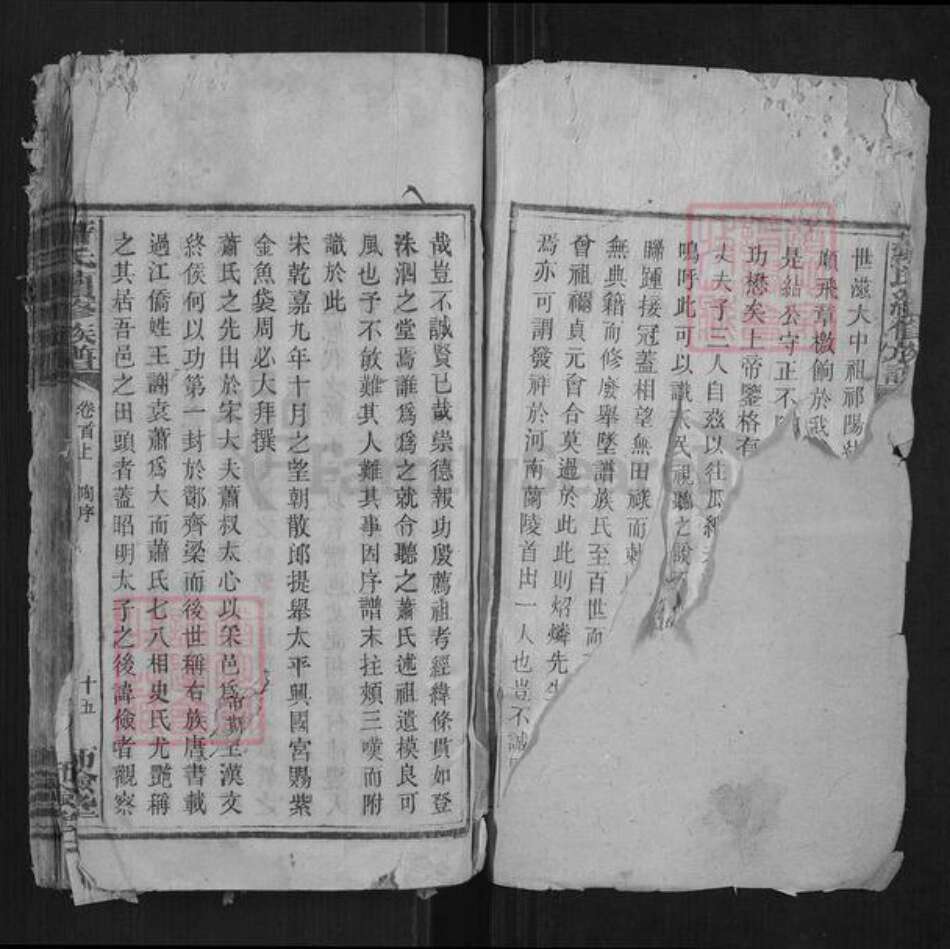 世滋大中祖祁陽
廟飛章檄餉於我
是結公守正不
功懋矣上帝鑒格有
丈夫子三人自茲以往瓜
嗚呼此可以識天民視聽之說
睎踵接冠蓋相望無田祿而
無典籍而修廢舉墜譜族氏至百世而
曾祖禰貞元會合莫過於此此則炤燐先生
焉亦可謂發祥於河南蘭陵首出一人也豈不誠
哉豈不誠賢已哉崇德報功殷薦祖考經緯條貫如登
洙泗之堂焉誰爲爲之就令聽之蕭氏述祖遺模良可
風也予不敏難其人難其事因序譜末拄頰三嘆而附
識於此
宋乾嘉九年十月之望朝散郎提舉太平興國宮賜紫
金魚袋周必大拜撰
蕭氏之先出於宋大夫蕭叔大心以采邑爲帝鄉至漢文
終侯何以功第一封於酇齊梁而後世稱右族唐書載
過江僑姓王謝袁蕭爲大而蕭氏七八相史氏尤豔稱
之其居吾邑之田頭者蓋昭明太子之後諱儉者觀察
蕭氏續修族譜
卷首上
陶序
十五
師儉堂